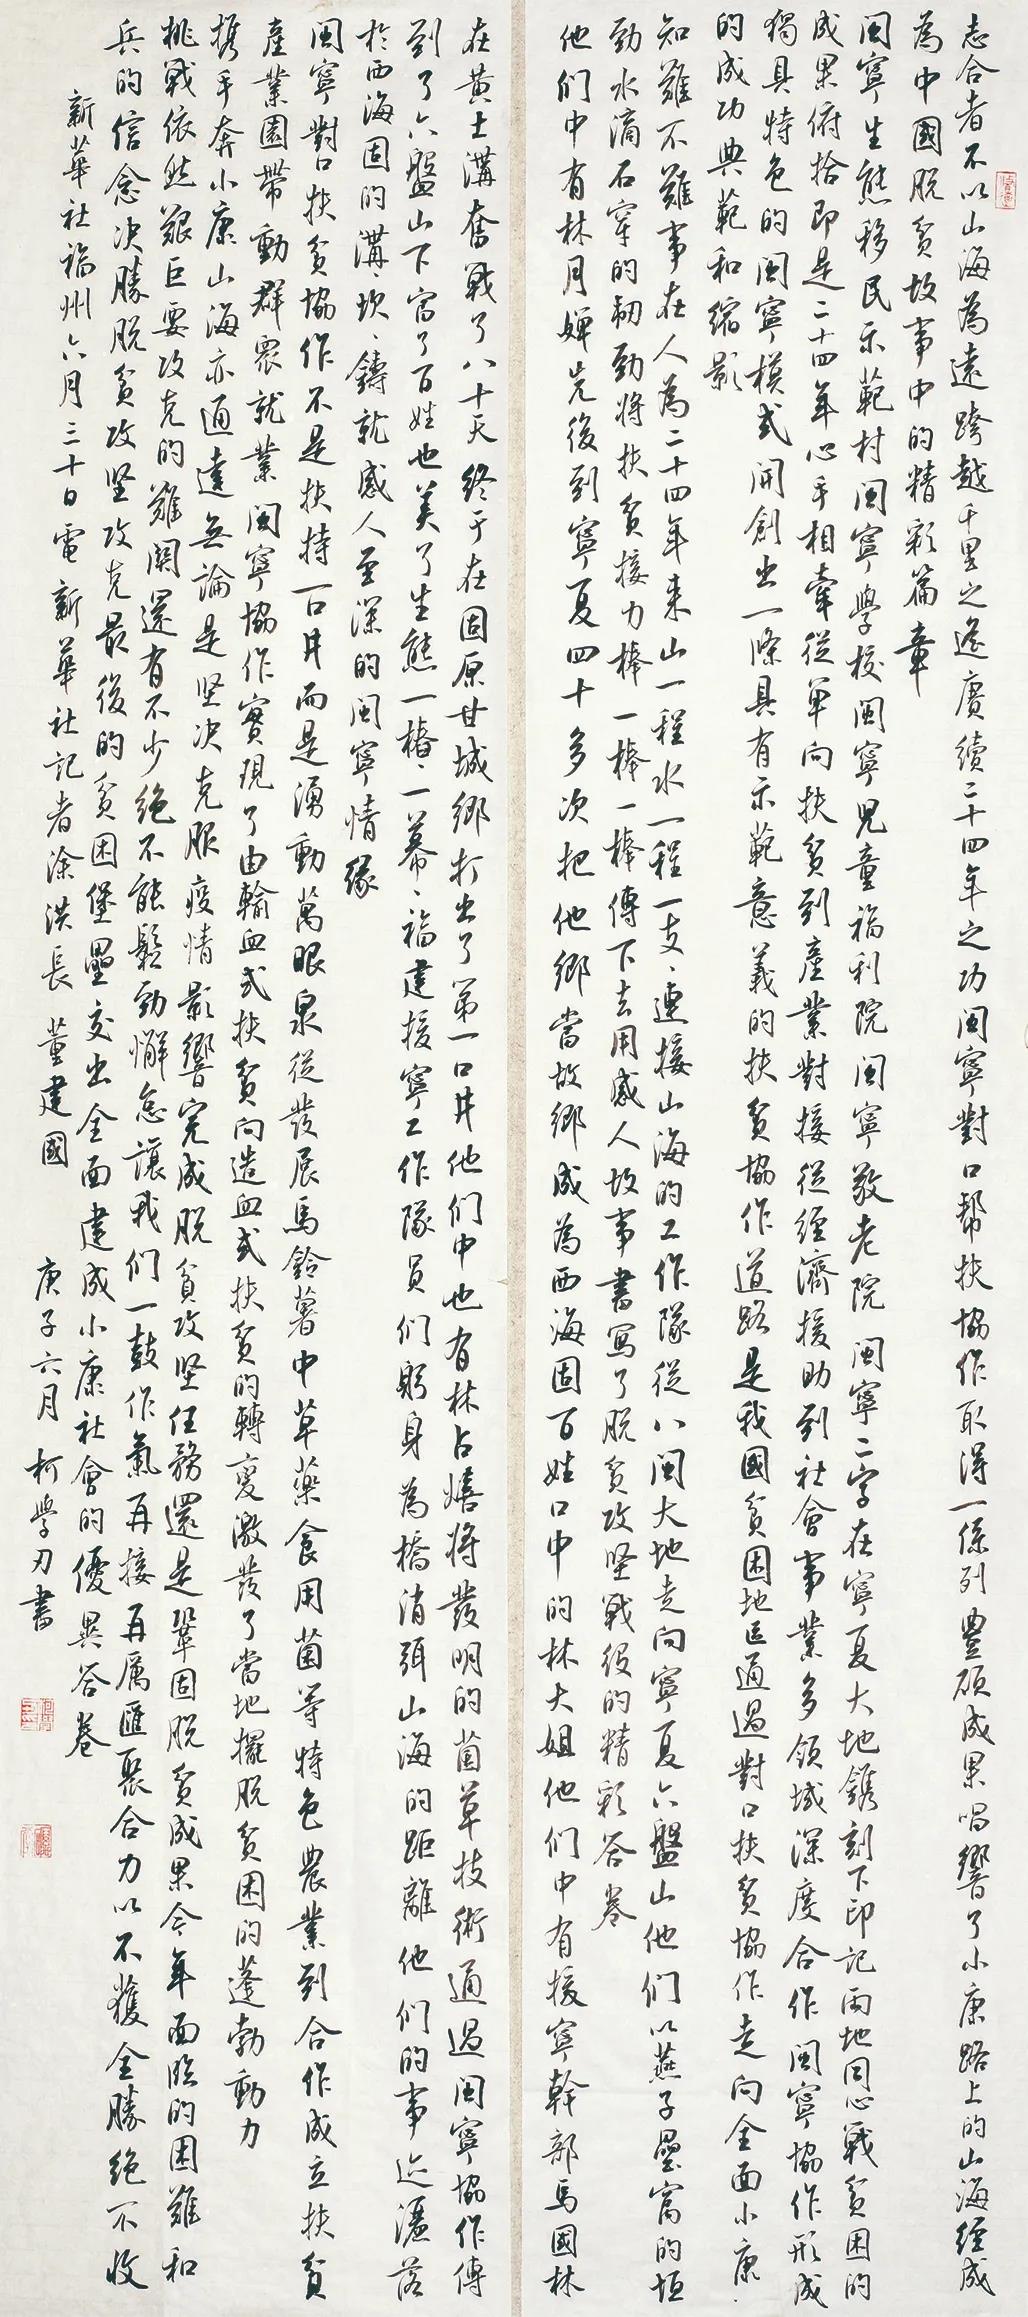 志合者不以山海為遠跨越千里之遙賡續二十四年之功閩寧對口幫扶協作取得一係列豐碩成果唱響了小康路上的山海經成
為中國脫貧故事中的精彩篇章
閩寧生態移民示範村閩寧學校閩寧兒童福利院閩寧敬老院閩寧二字在寧夏大地鐫刻下印記兩地同心戰貧困的
成果俯拾即是二十四年心手相牽從單向扶貧到產業對接從經濟援助到社會事業多領域深度合作閩寧協作形成
獨具特色的閩寧模式開創出一條具有示範意義的扶貧協作道路是我國貧困地區通過對口扶貧協作走向全面小康
的成功典範和縮影
知難不難事在人為二十四年來山一程水一程一支、連接山海的工作隊從八閩大地走向寧夏六盤山他們以燕子壘窩的恒
勁水滴石穿的韌勁將扶貧接力棒一棒一棒傳下去用感人故事書寫了脫貧攻堅戰役的精彩答卷
他們中有林月嬋先後到寧夏四十多次把他鄉當故鄉成為西海固百姓口中的林大姐他們中有援寧幹部馬國林
在黃土溝奮戰了八十天終于在固原甘城鄉打出了第一口井他們中也有林占熺將發明的菌草技術通過閩寧協作傳
到了六盤山下富了百姓也美了生態一樁、一幕、福建援寧工作隊員們躬身為橋消弭山海的距離他們的事迹灑落
於西海固的溝、坎、鑄就感人至深的閩寧情緣
閩寧對口扶貧協作不是扶持一口井而是湧動萬眼泉從發展馬鈴薯中草藥食用菌等特色農業到合作成立扶貧
產業園帶動群衆就業閩寧協作實現了由輸血式扶貧向造血式扶貧的轉變激發了當地擺脫貧困的蓬勃動力
攜手奔小康山海亦通達無論是堅决克服疫情影響完成脫貧攻堅任務還是鞏固脫貧成果今年面臨的困難和
挑戰依然艱巨要攻克的難關還有不少絕不能鬆勁懈怠讓我們一鼓作氣再接再厲匯聚合力以不獲全勝絕不收
兵的信念决勝脫貧攻堅攻克最後的貧困堡壘交出全面建成小康社會的優異答卷
新華社福州六月三十日電新華社記者涂洪長 董建國 庚子六月 柯學刃書